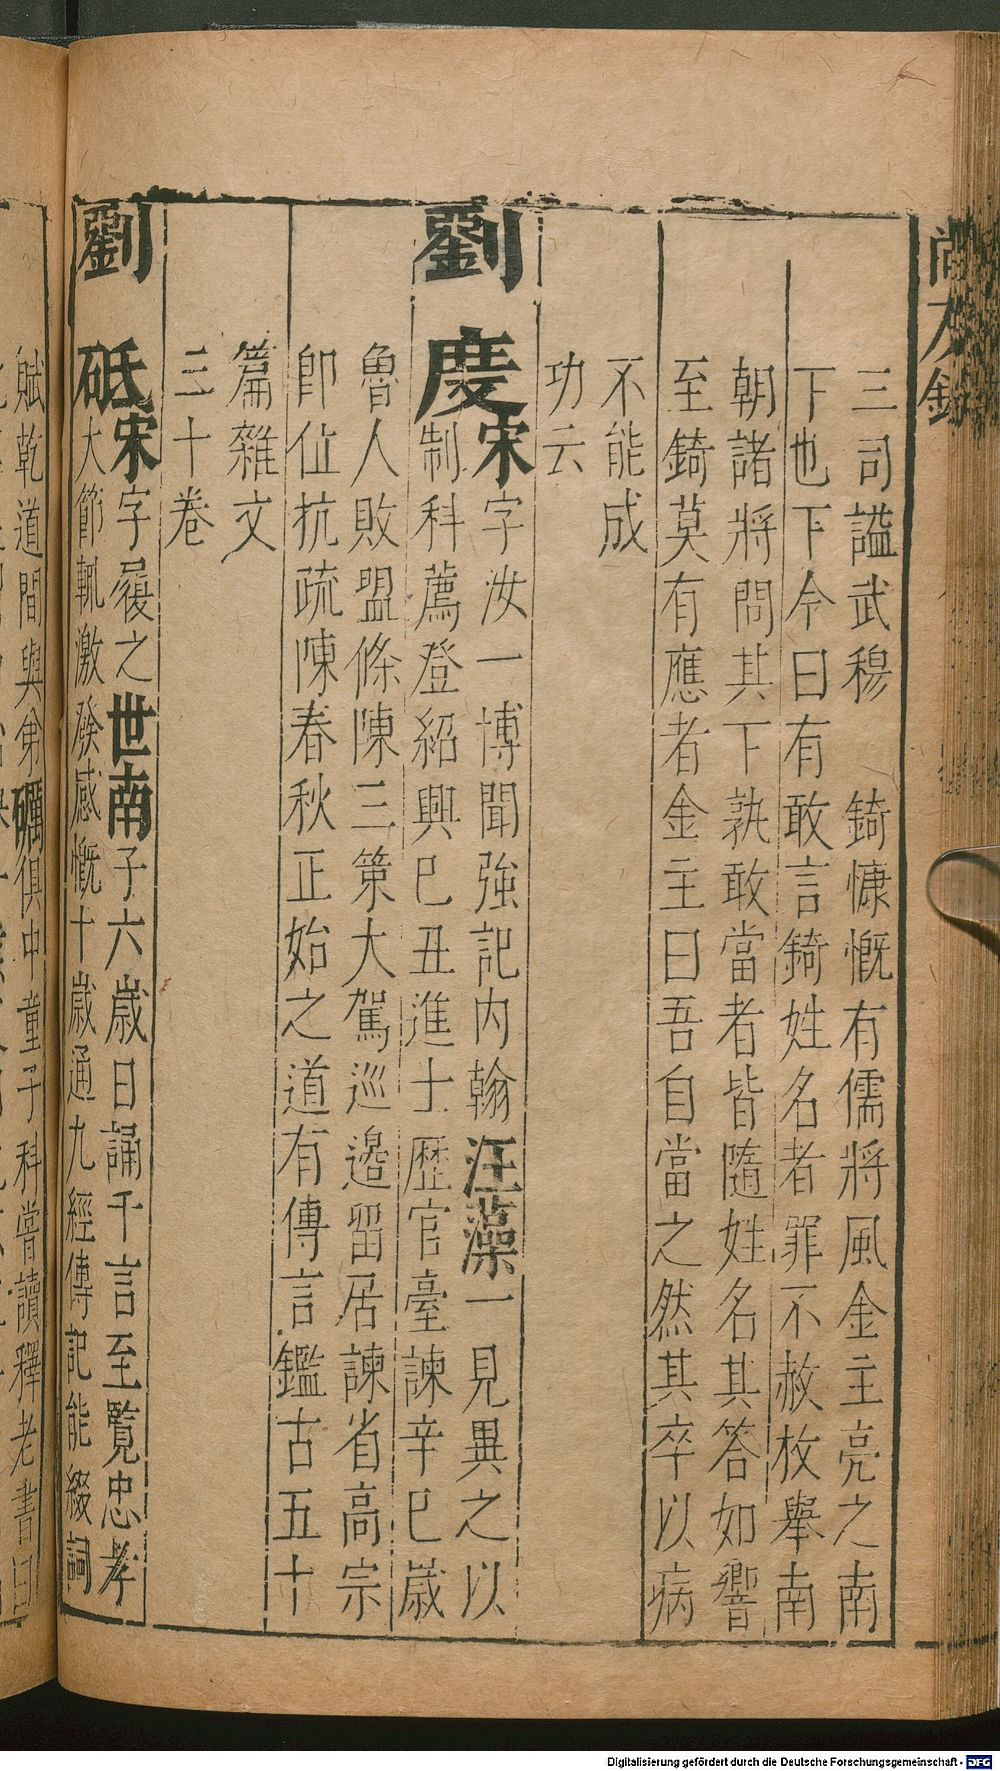 尚友錄
三司謚武穆　錡慷慨有儒將風金主亮之南
下也下令曰有敢言錡姓名者罪不赦枚舉南
朝諸將問其下孰敢當者皆隨姓名其答如響
至錡莫有應者金主曰吾自當之然其卒以病
不能成
功云
劉度宋字汝一博聞強記内翰汪藻一見異之以
制科薦登紹興巳丑進士歴官臺諫辛巳歲
魯人敗盟條陳三策大駕巡邉留居諫省高宗
即位抗疏陳春秋正始之道有傳言鑑古五十
篇雜文
三十卷
劉砥宋字履之世南子六歲日誦千言至覽忠孝
大節輒激發感慨十歲通九經傳記能綴詞
賦乾道間與弟礪俱中童子科嘗讀釋老書曰
Digitalisierung gefördert durch die Deutsche Forschungsgemeinschaft - DFG